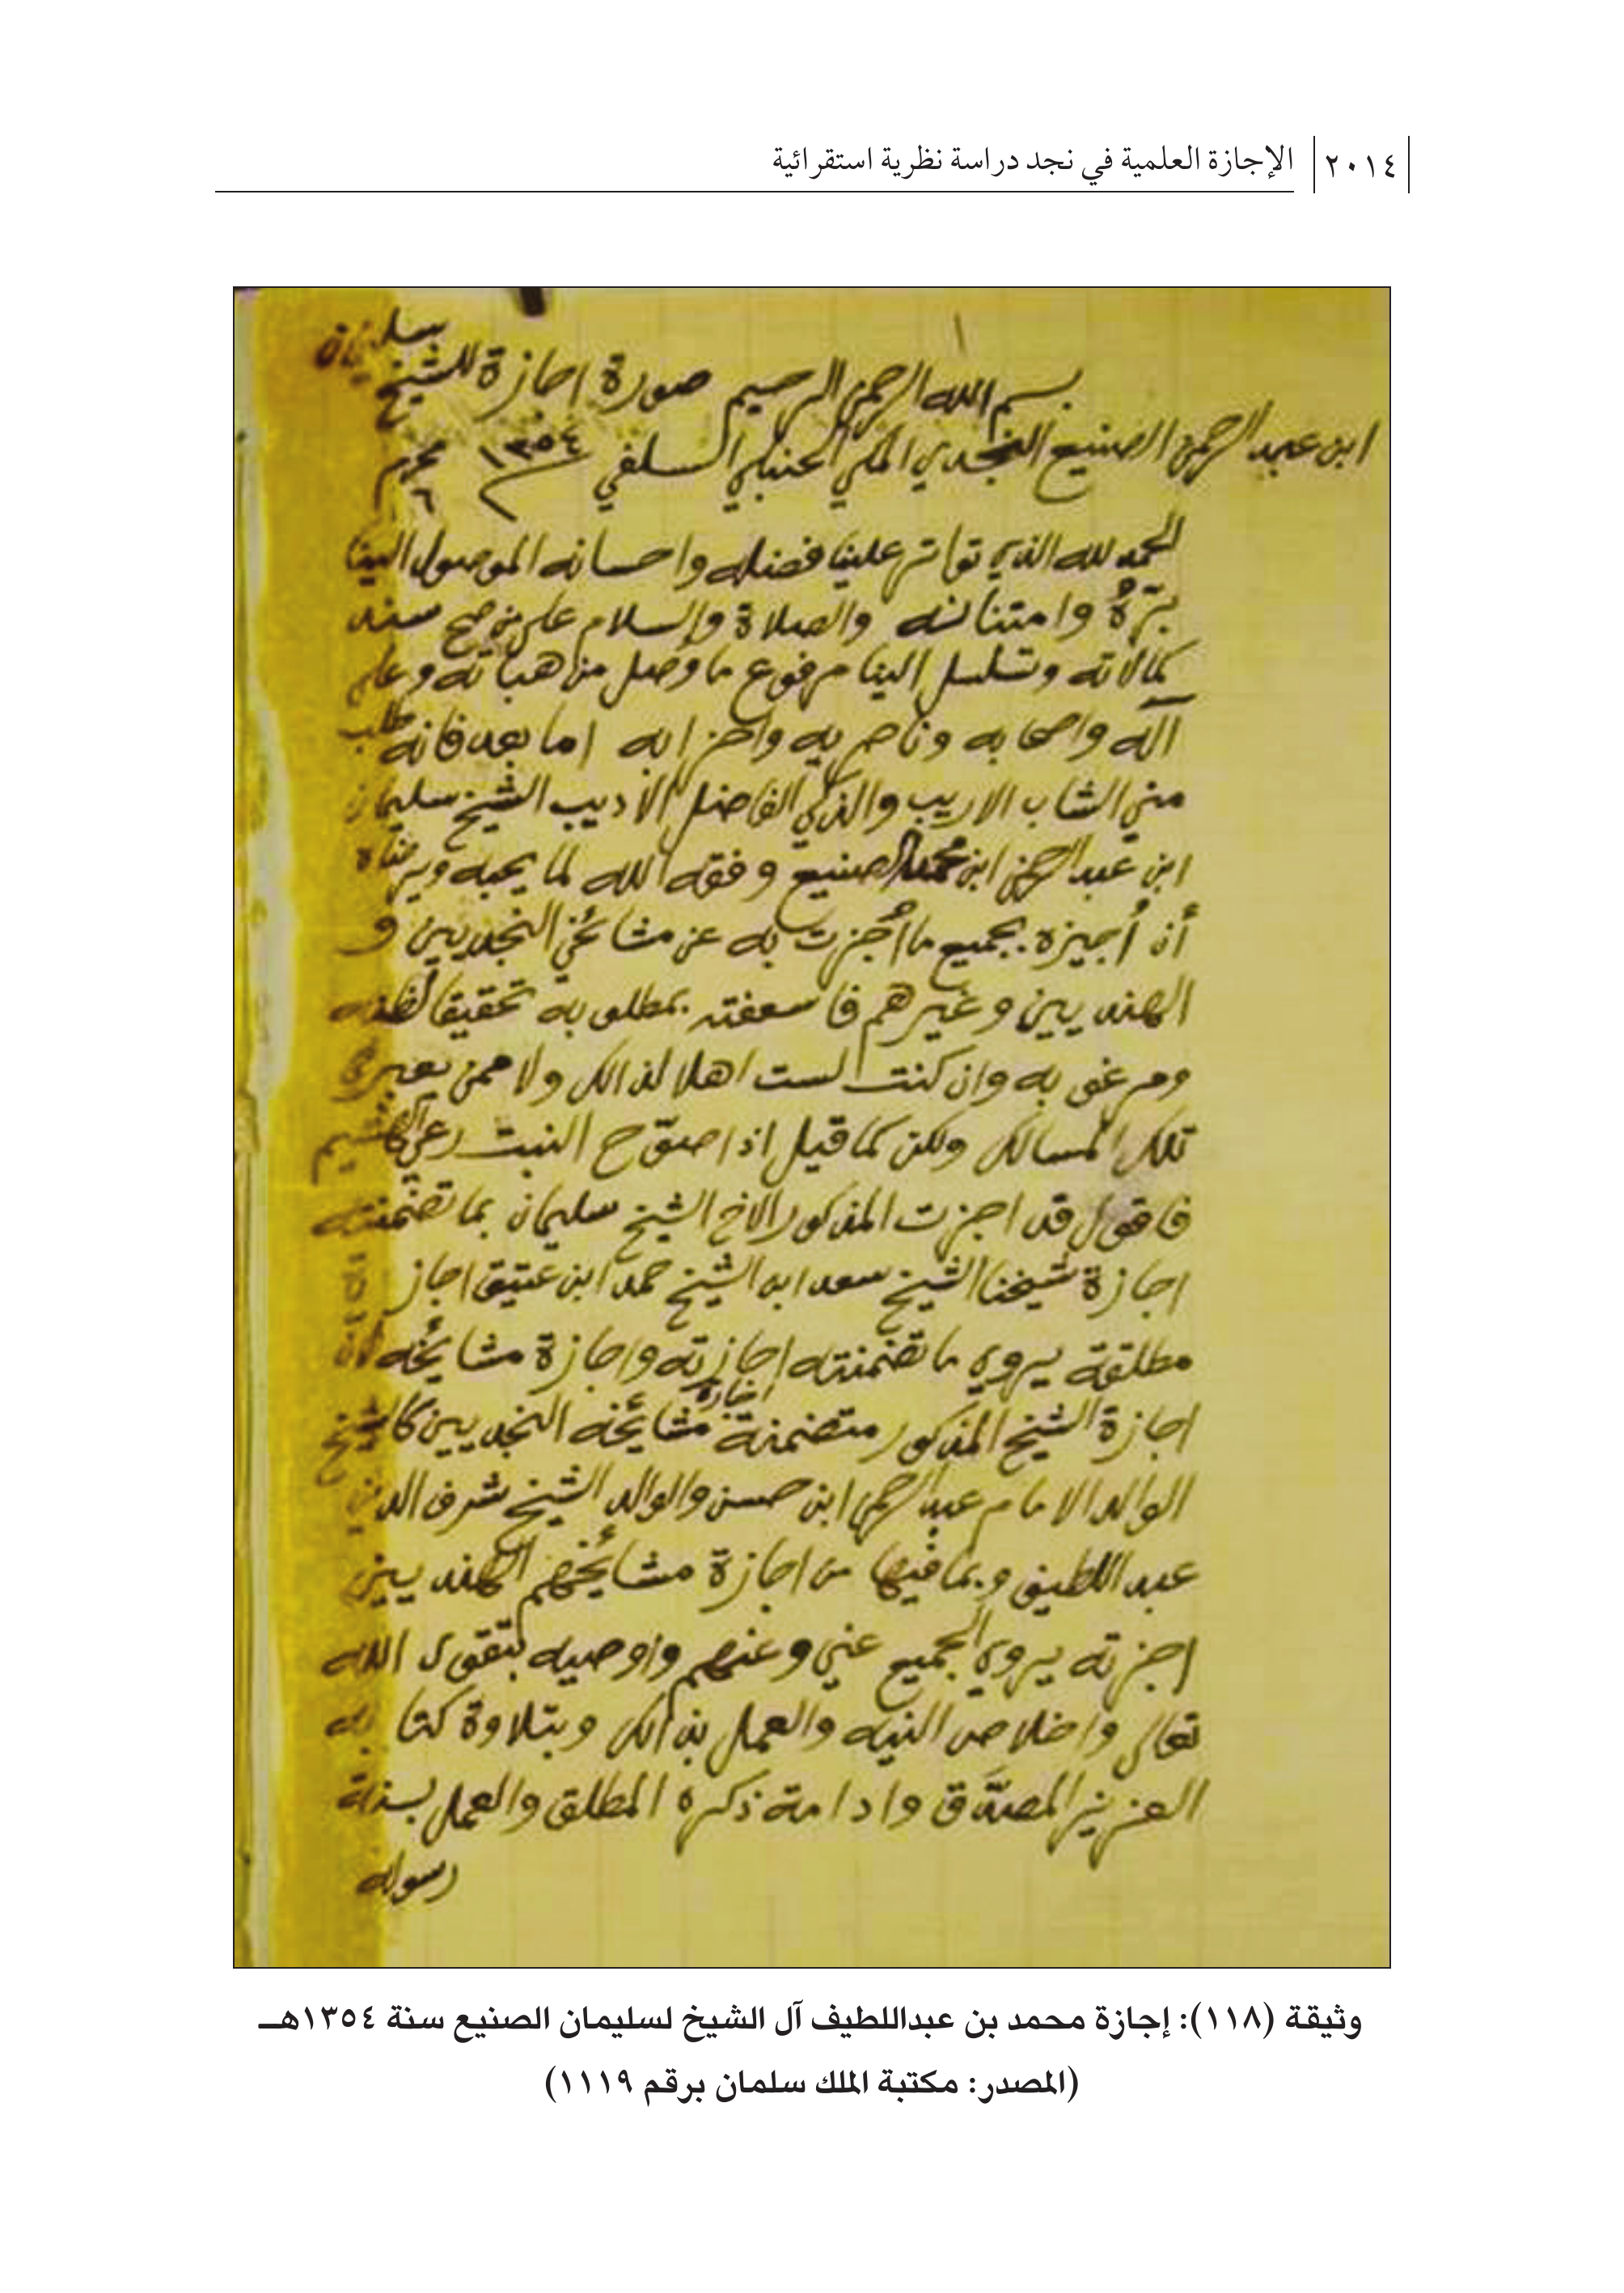 ٢٠١٤ الإجازة العلمية في نجد دراسة نظرية استقرائية
١
بسم الله الرحمن الرحيم صورة اجازة للشيخ سليمان
ابن عبد الرحمن الصنيع النجدي المكي الحنبلي السلفي ١٣٥٤ محرم ٦
الحمد لله الذي تواتر علينا فضله واحسانه الموصول الينا
برّهُ وامتنانه والصلاة والسلام على من صح سند
كمالاته وتسلسل الينا مرفوع ما وصل من هباته وعلى
آله واصحابه وناصريه واحزابه اما بعد فانه طلب
مني الشاب الاريب والذكي الفاضل الأديب الشيخ سليمان
ابن عبد الرحمن ابن محمد الصنيع وفقه الله لما يحبه ويرضاه
أن أُجيزه بجميع ما أُجزت به عن مشائخي النجديين و
الهنديين وغيرهم فاسعفته بمطلوبه تحقيقا لظنه
ومرغوبه وان كنت لست اهلا لذالك ولا ممن يعبر في
تلك المسالك ولكن كما قيل اذا صوّح النبت رعي الهشيم
فاقول قد اجزت المذكور الاخ الشيخ سليمان بما تضمنته
اجازة شيخنا الشيخ سعد ابن الشيخ حمد ابن عتيق اجازة
مطلقة يروي ما تضمنته اجازته واجازة مشايخه لأن
اجازة الشيخ المذكور متضمنة اجازة مشائخه النجديين كالشيخ
الوالد الامام عبد الرحمن ابن حسن والوالد الشيخ شرف الدين
عبد اللطيف وبما فيها من اجازة مشائخهم الهنديين
اجزته يروي الجميع عني وعنهم واوصيه بتقوى الله
تعالى واخلاص النيه والعمل بذالك وبتلاوة كتابه
العزيز المصدَّق وادامة ذكره المطلق والعمل بسنة
رسوله
وثيقة (١١٨): إجازة محمد بن عبداللطيف آل الشيخ لسليمان الصنيع سنة ١٣٥٤هـ
(المصدر: مكتبة الملك سلمان برقم ١١١٩)